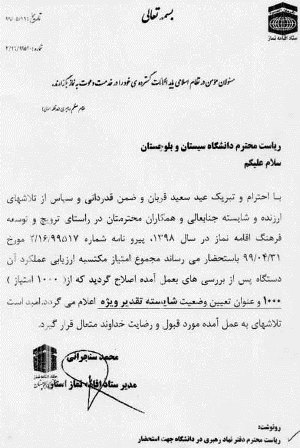 بسمه تعالی
ستاد اقامه نماز
مسئولان مومن در نظام اسلامی باید امکانات گسترده ی خود را در خدمت دعوت به نماز بگذارند.
ریاست محترم دانشگاه سیستان و بلوچستان
سلام علیکم
با احترام و تبریک عید سعید قربان و ضمن قدردانی و سپاس از تلاشهای
ارزنده و شایسته جنابعالی و همکاران محترمتان در راستای ترویج و توسعه
فرهنگ اقامه نماز در سال ۱۳۹۸، پیرو نامه شماره ۳/۱۶/۹۹۵۱۷ مورخ
۹۹/۰۴/۳۱ باستحضار می رساند مجموع امتیاز مکتسبه ارزیابی عملکرد آن
دستگاه پس از بررسی های بعمل آمده اصلاح گردید که از( ۱۰۰۰ امتیاز )
۱۰۰۰ و عنوان تعیین وضعیت شایسته تقدیر ویژه اعلام می گردد. امید است
تلاشهای به عمل آمده مورد قبول و رضایت خداوند متعال قرار گیرد.
محمد سنجرانی
مدیر ستاد اقامه نماز استان
رونوشت:
ریاست محترم دفتر نهاد رهبری در دانشگاه جهت استحضار